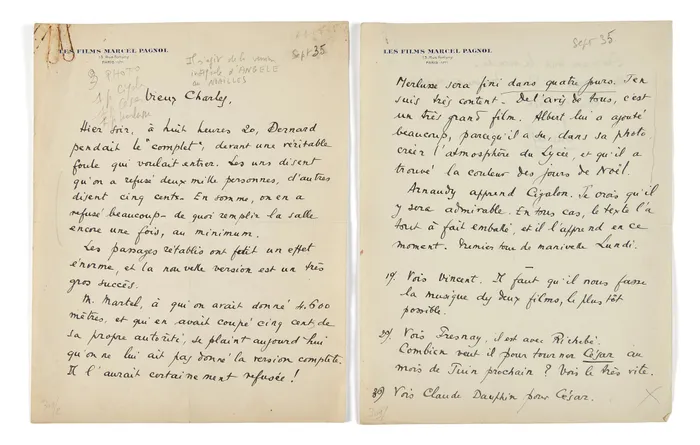 LES FILMS MARCEL PAGNOL
13, Rue Fortuny
PARIS
Sept 35
PHOTO
Il s'agit de la version
intégrale d'ANGELE
au NOAILLES
Vieux Charles,
Hier soir, à huit heures 20, Dornard
pendait le "complet", devant une véritable
foule qui voulait entrer. Les uns disent
qu'on a refusé deux mille personnes, d'autres
disent cinq cents. En somme, on en a
refusé beaucoup - de quoi remplir la salle
encore une fois, au minimum.
Les passages rétablis ont fait un effet
énorme, et la nouvelle version est un très
gros succès.
M. Martel, à qui on avait donné 4.600
mètres, et qui en avait coupé cinq cents, de
sa propre autorité, se plaint aujourd'hui
qu'on ne lui ait pas donné la version complète.
Il l'aurait certainement refusée !
LES FILMS MARCEL PAGNOL
13, Rue Fortuny
PARIS
Sept 35
Merlusse sera fini dans quatre jours. J'en
suis très content - De l'avis de tous, c'est
un très grand film. Albert lui a ajouté
beaucoup, parcequ'il a su, dans sa photo
créer l'atmosphère du Lycée, et qu'il a
trouvé la couleur des jours de Noël.
Arnaudy apprend Cigalon. Je crois qu'il
y sera admirable. En tous cas, le texte l'a
tout à fait emballé, et il l'apprend en ce
moment. Premier tour de manivelle Lundi.
1º). Vois Vincent. Il faut qu'il nous fasse
la musique des deux films, le plus tôt
possible.
2º). Vois Fresnay, il est avec Richebé.
Combien veut il pour tourner César au
mois de Juin prochain ? Vois le très vite.
3º) Vois Claude Dauphin pour César.